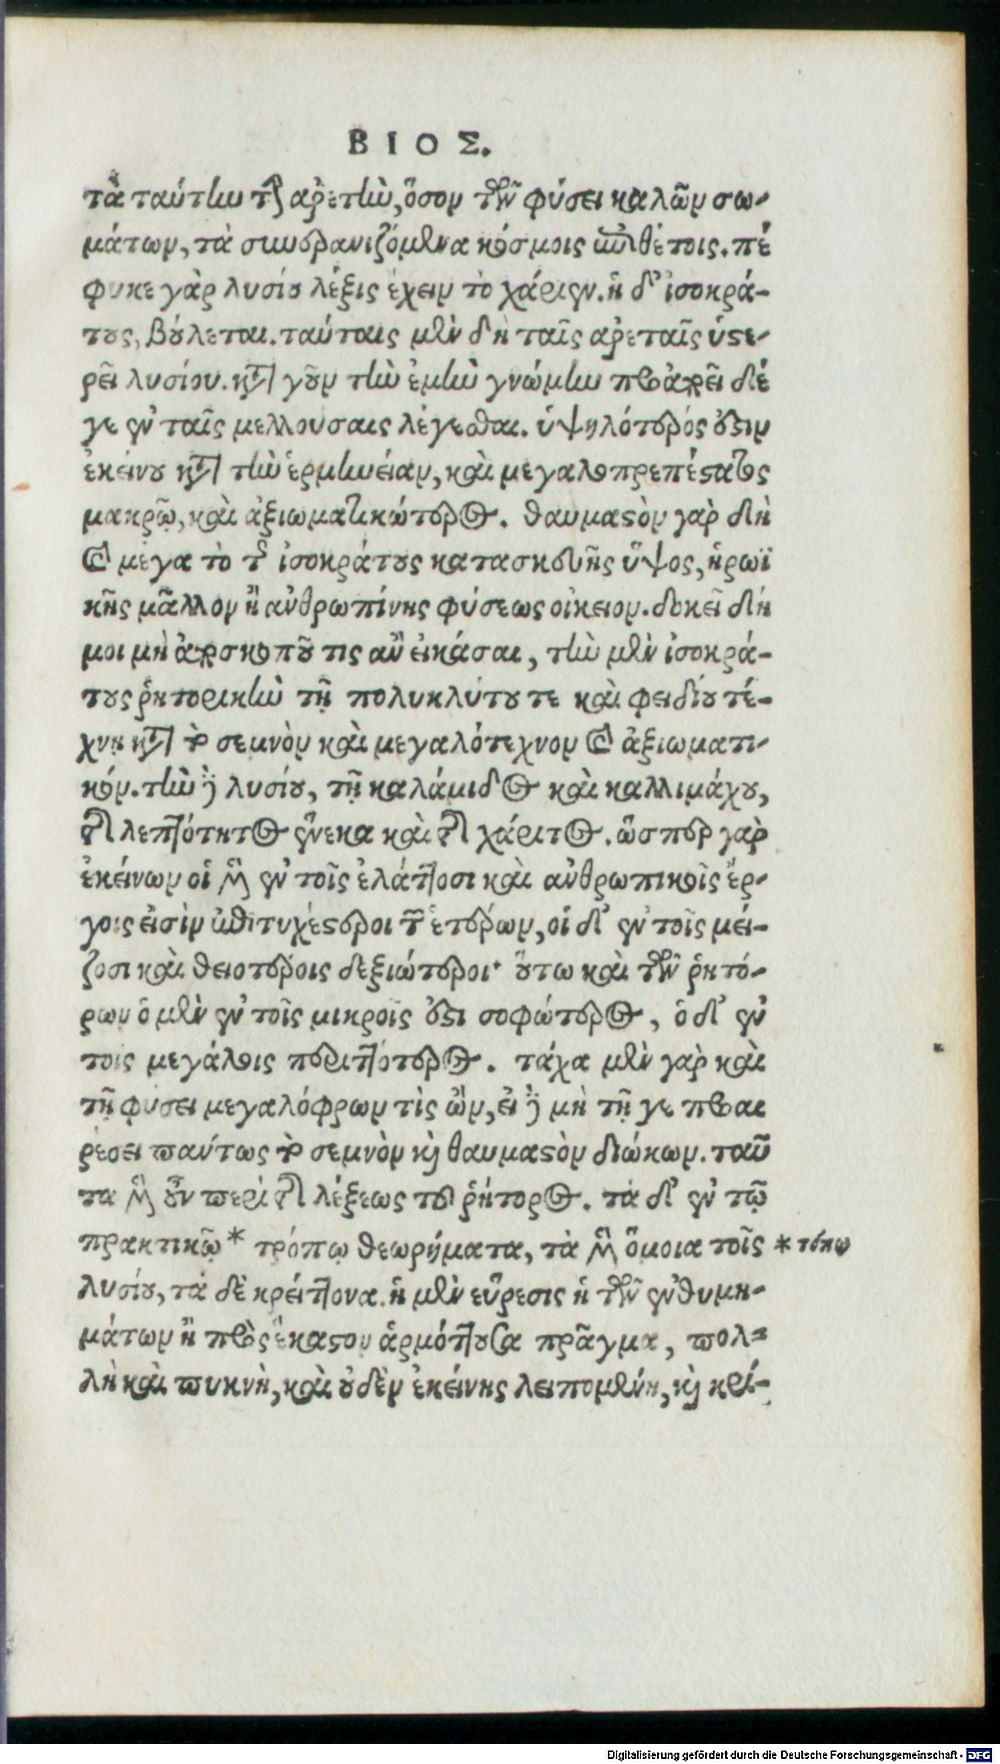 ΒΙΟΣ.
τὰ ταύτην τὴν ἀρετὴν, ὅσον τῶν φύσει καλῶν σω-
μάτων, τὰ συνερανιζόμενα κόσμοις ἐπιθέτοις. πέ
φυκε γὰρ λυσίου λέξις ἔχειν τὸ χάριεν. ἡ δ' ἰσοκρά-
τους, βούλεται. ταύταις μὲν δὴ ταῖς ἀρεταῖς ὑστε-
ρεῖ λυσίου. κατὰ γοῦν τὴν ἐμὴν γνώμην προἀρεῖ διέ
γε ἐν ταῖς μελλούσαις λέγεσθαι. ὑψηλότερός ἐστιν
ἐκείνου κατὰ τὴν ἑρμηνείαν, καὶ μεγαλοπρεπέστατος
μακρῷ, καὶ ἀξιωματικώτερος. θαυμαστὸν γὰρ δὴ
καὶ μέγα τὸ τῆς ἰσοκράτους κατασκευῆς ὕψος, ἡρωϊ
κῆς μᾶλλον ἢ ἀνθρωπίνης φύσεως οἰκειον. δοκεῖ δή
μοι μὴ ἀπὸ σκοποῦ τις ἂν εἰκάσαι, τὴν μὲν ἰσοκρά-
τους ῥητορικὴν τῇ πολυκλύτου τε καὶ φειδίου τέ-
χνῃ κατὰ τὸ σεμνὸν καὶ μεγαλότεχνον καὶ ἀξιωματι-
κόν. τὴν δὲ λυσίου, τῇ καλάμιδος καὶ καλλιμάχου,
τῆς λεπτότητος ἕνεκα καὶ τῆς χάριτος. ὥσπερ γὰρ
ἐκείνων οἱ μὲν ἐν τοῖς ἐλάττοσι καὶ ἀνθρωπικοῖς ἔρ-
γοις εἰσὶν ἐπιτυχέστεροι τῶν ἑτέρων, οἱ δ' ἐν τοῖς μεί-
ζοσι καὶ θειοτέροις δεξιώτεροι· οὕτω καὶ τῶν ῥητό-
ρων ὁ μὲν ἐν τοῖς μικροῖς ἐστι σοφώτερος, ὁ δ' ἐν
τοῖς μεγάλοις περιττότερος. τάχα μὲν γὰρ καὶ
τῇ φύσει μεγαλόφρων τὶς ὢν, εἰ δὲ μὴ τῇ γε προαι
ρέσει πάντως τὸ σεμνὸν καὶ θαυμαστὸν διώκων. ταῦ
τα μὲν οὖν περὶ τῆς λέξεως τοῦ ῥήτορος. τὰ δ' ἐν τῷ
πρακτικῷ * τρόπῳ θεωρήματα, τὰ μὲν ὅμοια τοῖς
* τόπῳ
λυσίου, τὰ δὲ κρείττονα. ἡ μὲν εὕρεσις ἡ τῶν ἐνθυμη-
μάτων ἢ πρὸς ἕκαστον ἁρμόττουσα πρᾶγμα, πολ-
λὴ καὶ πυκνὴ, καὶ οὐδὲν ἐκείνης λειπομένη, καὶ κρί-
Digitalisierung gefördert durch die Deutsche Forschungsgemeinschaft - DFG